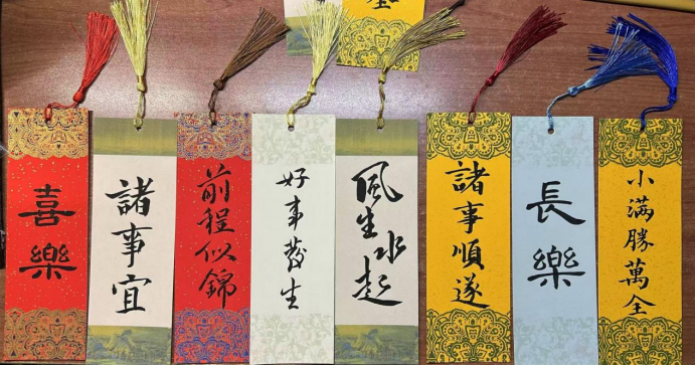 喜樂
諸事宜
前程似錦
好事發生
風生水起
諸事順遂
長樂
小滿勝萬全